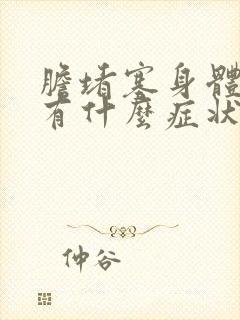 膽堵塞身體
有什麼症狀
仲谷